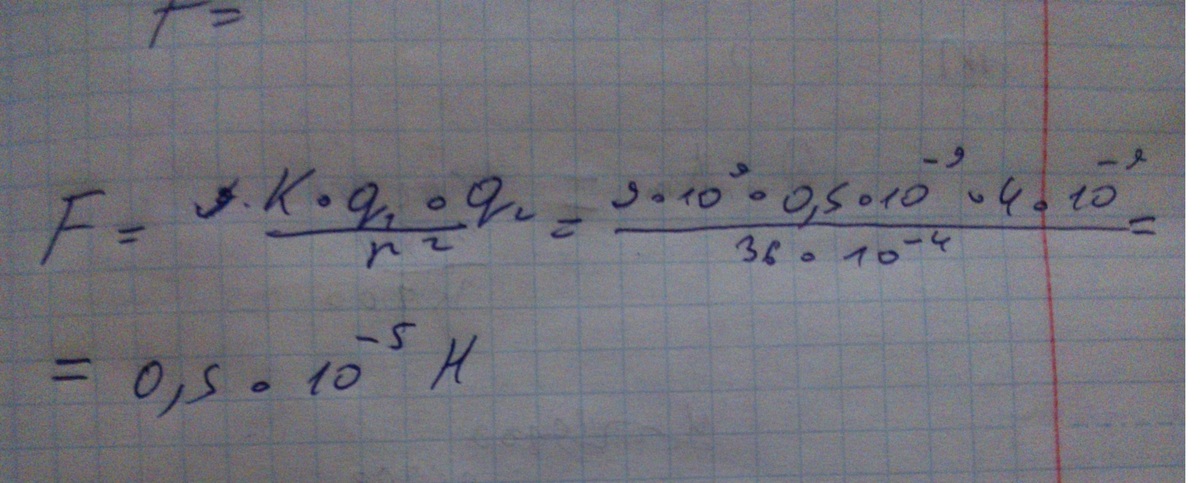 F =
F = K · q₁ · q₂ / r² = 9 · 10⁹ · 0,5 · 10⁻⁹ · 4 · 10⁻⁹ / 36 · 10⁻⁴ =
= 0,5 · 10⁻⁵ Н